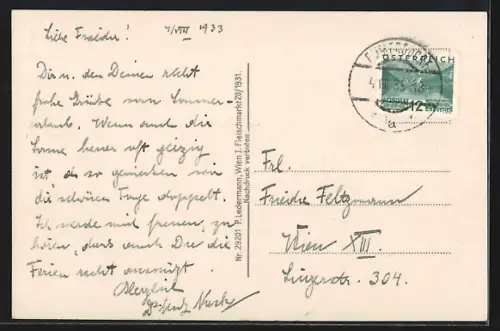 Liebe Frieder! 4/VIII 1933
Dir u. den Deinen recht
frohe Grüße vom Sommer-
urlaub. Wenn auch die
Sonne heuer oft geizig
ist, so genießen wir
die schönen Tage doppelt.
Ich werde mich freuen, zu
hören, dass auch Du die
Ferien recht ausnützt.
Herzlich
Nr. 29201 P. Ledermann, Wien I. Fleischmarkt 20/1931.
Nachdruck verboten
ÖSTERREICH
12 GROSCHEN
Frl.
Friedl Feltzmann
Wien XIII.
Linzerstr. 304.